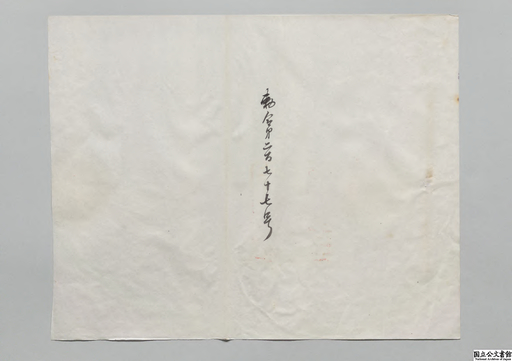 勅令第二百七十七号
国立公文書館
National Archives of Japan